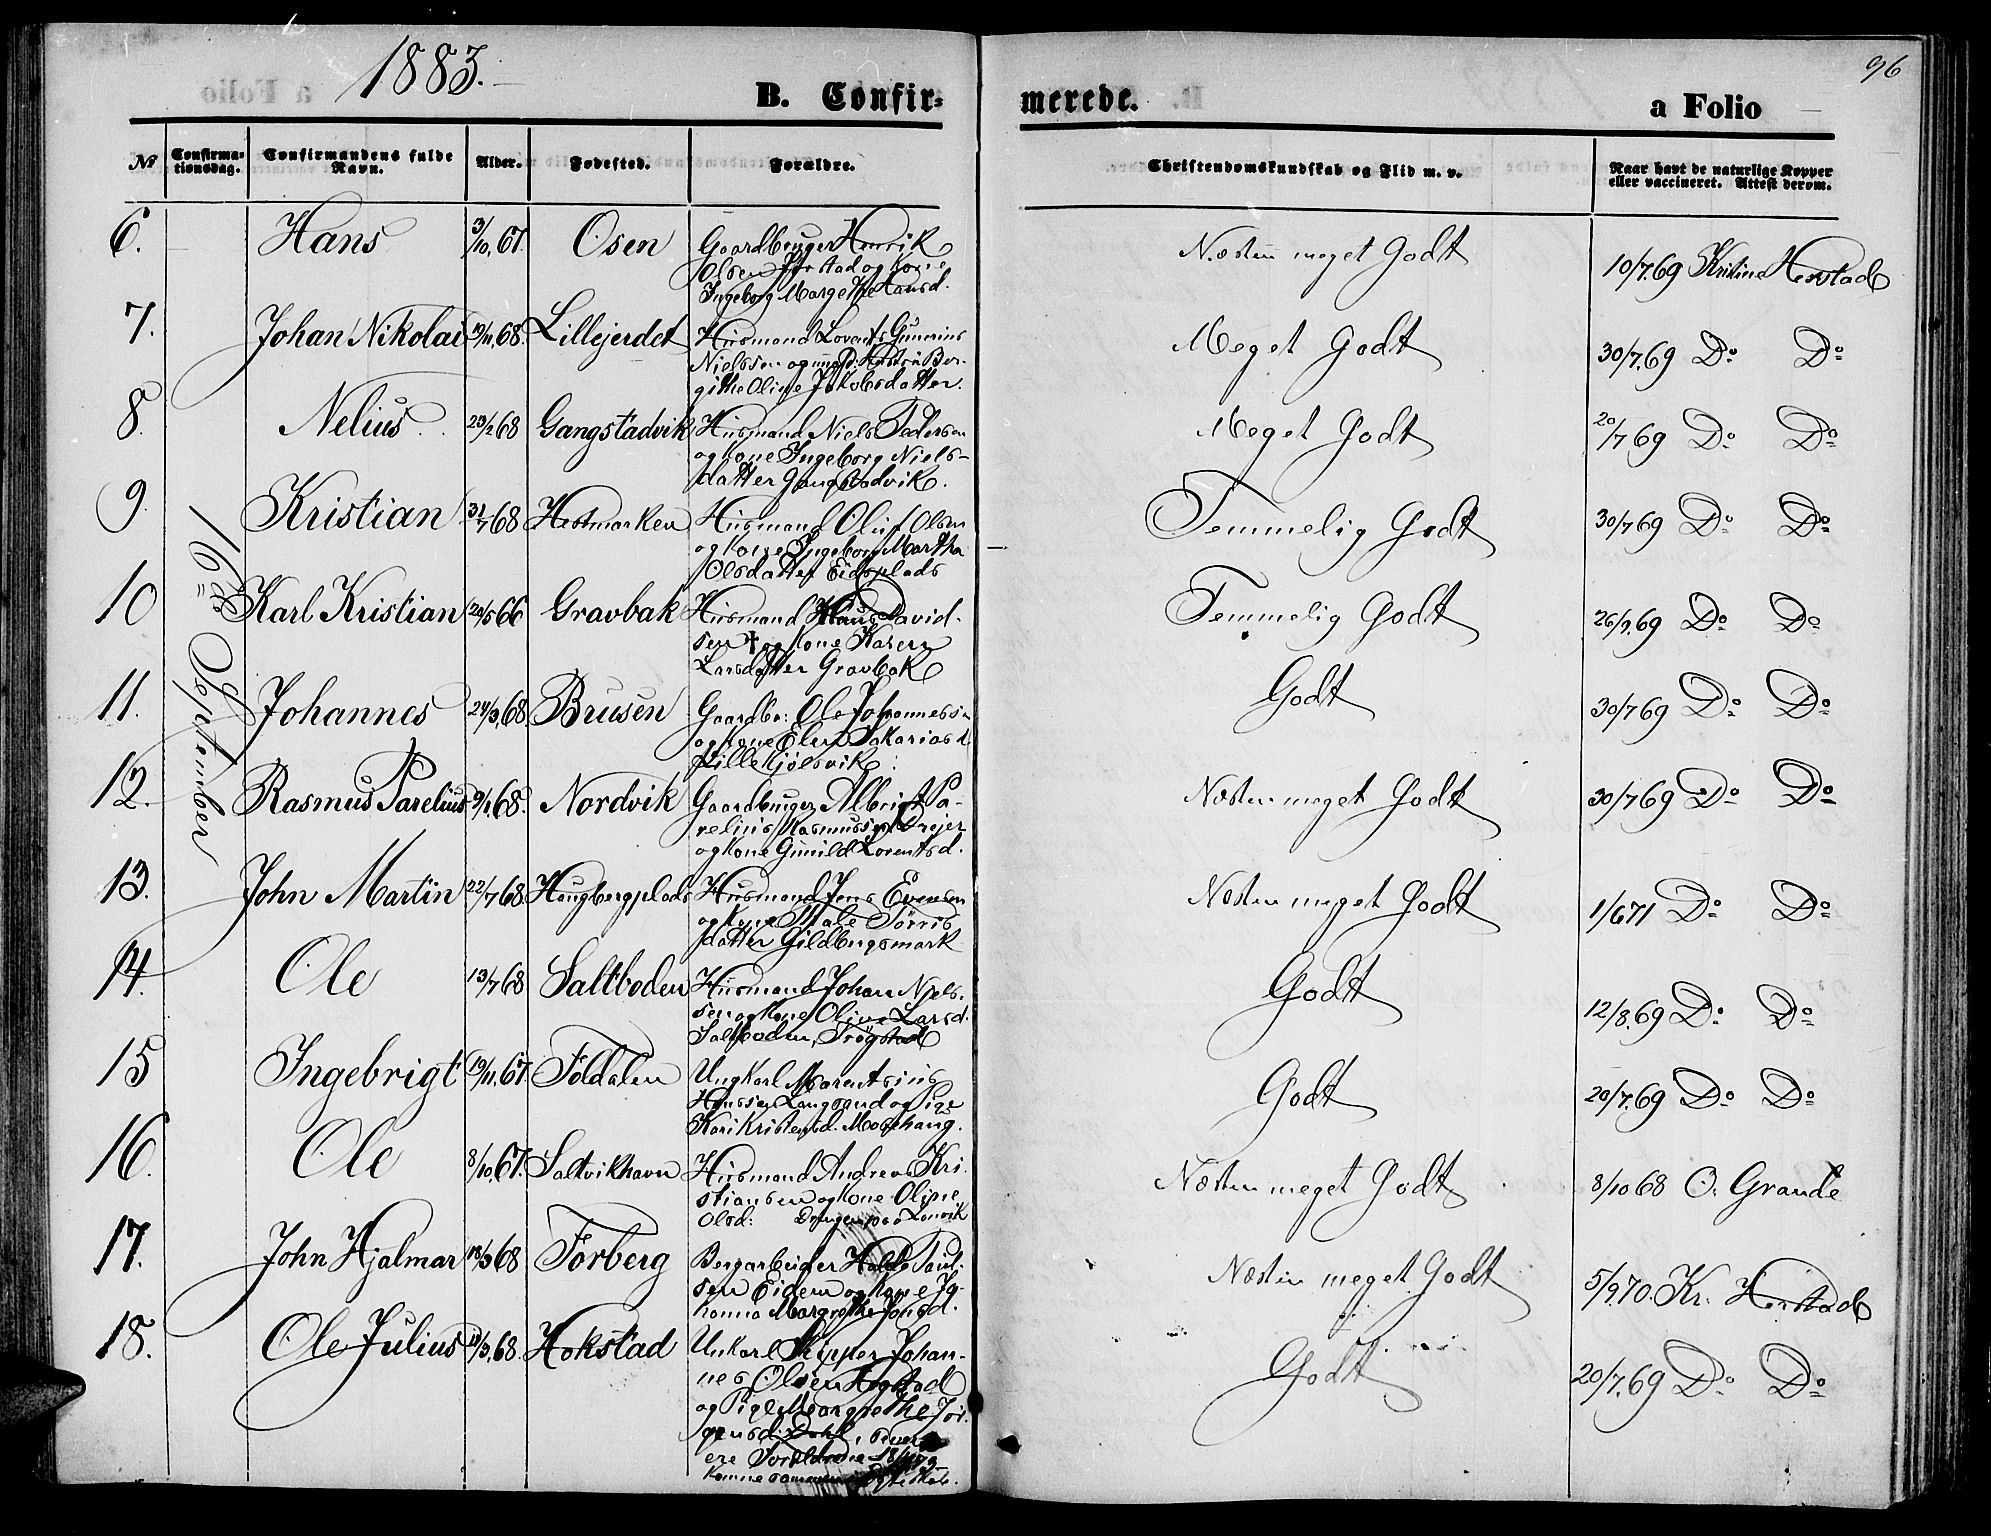 1883.
96
B. Confir-
merede.
a Folio
No
Confirma-
tionsdag.
Confirmandens fulde
Navn.
Alder.
Fødested.
Forældre.
Christendomskundskab og Flid m. v.
Naar havt de naturlige Kopper
eller vaccineret. Attest derom.
16de September
6. Hans 3/10.67. Osen Gaardbruger Henrik
Olsen og Kone
Ingeborg Margethe Hansd.
Næsten meget Godt 10/7.69 Kristine Herstad
7. Johan Nikolai 19/11.68. Lillejerdet Husmand Lorents Gunerius
Nielssen og Ber-
githe Oline Jakobsdatter.
Meget Godt 30/7.69 Do Do
8. Nelius 23/2 68 Gangstadvik Husmand Niels Pedersen
og Kone Ingeborg Niels-
datter Gangstadvik.
Meget Godt 20/7 69 Do Do
9. Kristian 31/7 68 Hestmarken Husmand Oluf Olsen
og Kone Ingeborg Martha
Olsdatter Eidsplads
Temmelig Godt 30/7 69 Do Do
10 Karl Kristian 20/5 66 Gravbak Husmand Klaus David-
sen † og Kone Karen
Larsdatter Gravbak
Temmelig Godt 26/9.69 Do Do
11. Johannes 24/3.68 Brusen Gaardbr: Ole Johannessen
og Kone Elen Sakariasd.
Lille Kjølsvik
Godt 30/7 69 Do Do
12. Rasmus Parelius 9/1.68. Nordvik Gaardbruger Albrigt Pa-
relius Rasmussen Drejer
og Kone Gunild Lorentsd.
Næsten meget Godt 30/7 69 Do Do
13. John Martin 22/7 68. Haugbergplads Husmand Jens Evensen
og Kone Male Tørris
datter Gildbergsmark
Næsten meget Godt 1/6 71 Do Do
14. Ole 13/7 68 Saltboden Husmand Johan Niels-
sen og Kone Oline Larsd.
Saltboden, Trøgstad
Godt 12/8.69 Do Do
15 Ingebrigt 19/11.67. Foldalen Ungkarl Morentsius
Hanssen Langsand og Pige
Kari Kristensd. Mosehaug.
Godt 20/7.69 Do Do
16. Ole 8/10.67. Saltvikhavn Husmand Andreas Kri-
stiansen og Kone Oline
Olsd:
Næsten meget Godt 8/10 68 O. Grande
17. John Hjalmar 18/3 68 Forberg Bergarbeider Paul-
sen Eidem og Kone Jo-
hanna Margrethe Jonsd.
Næsten meget Godt 5/9.70. Kr. Herstad
18. Ole Julius 18/3.68. Hokstad Unkarl Skipper Johan-
nes Olsen Hogstad
og Pige Margrethe Jør-
gensd: Dahl, sener
ere Forældrene 18/11 79
komne sammen i Egteskab.
Godt 20/7.69 Do Do